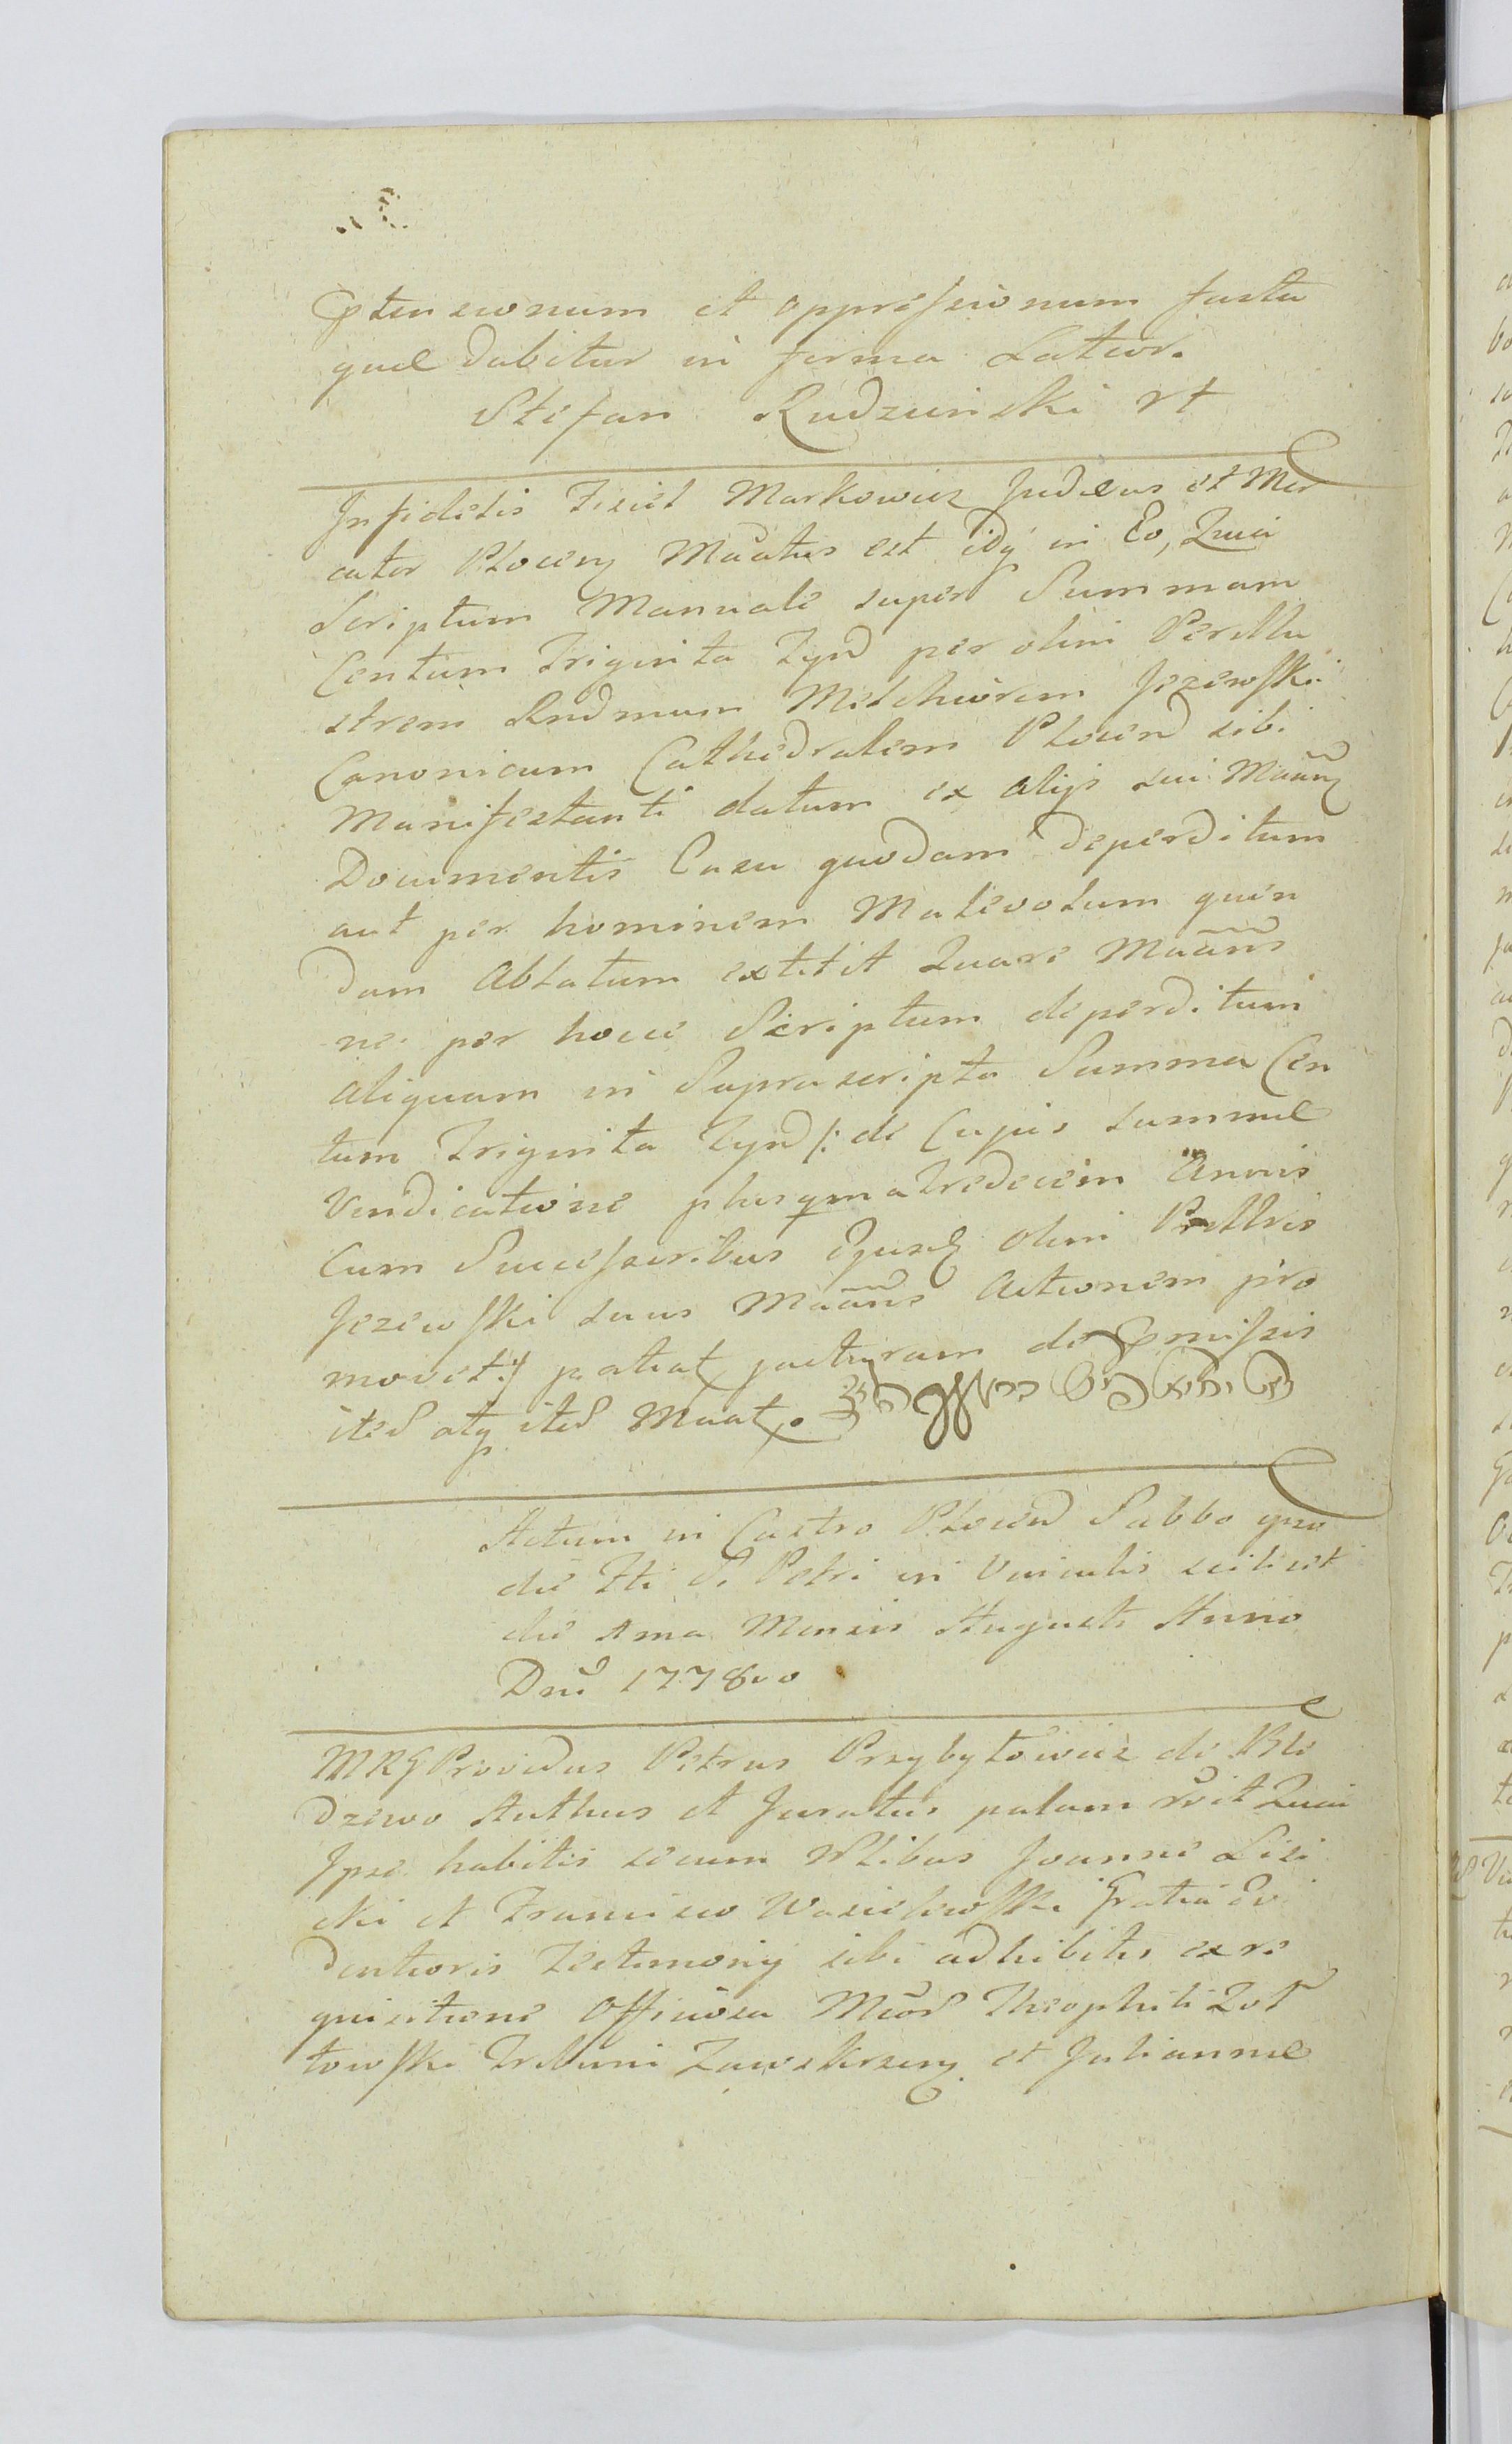 Extensionum et oppressionum facta
quae dabitur in forma Latior.
Stefan Rudzinski
Infidelis Feiel Markowicz Judaeus et Mer
cator Plocen Mãatus est idq in Eo, Quia
Scriptum Manuale super Summam
Centum Triginta Tynf per olim Perillu
strem Rndmum Melchiorem Jezewski
Canonicum Cathedralem Plocen sibi
Manifestanti datum ex alijs sui Mãan
Documentis Casu quodam deperditum
aut per hominem Malevolum quen
dam Ablatum extitit Quare Mãans
ne per hocce Scriptum deperditum
aliquam in Suprascripta Summa Cen
tum Triginta Tynf /: de Cujus summae
Vendicatione plusqma Tredecim Annis
Cum Successoribus Ejusd olim Prillris
Jezewski suus Mãans Actionem pro
movet :/ patiat jacturam de Pmissis
ited atq ited Maat.
Actum in Castro Plocen Sabbo ipso
die Fti S. Petri in Vinculis scilicet
die 1ma Mensis Augusti Anno
Dni 1778vo
MRG Providus Petrus Przybyłowicz de Ble
dzewo Authus et Juratus palam rvit Quia
Ipse habitis secum Nblibus Joanne Lisi
cki et Francisco Wasielewski Gratia Evi
dentioris Testimonij sibi adhibitis ex re
quisitione Officiosa Mcor Theophili Zoł
towski Tribuni Zawskrzen et Juliannae